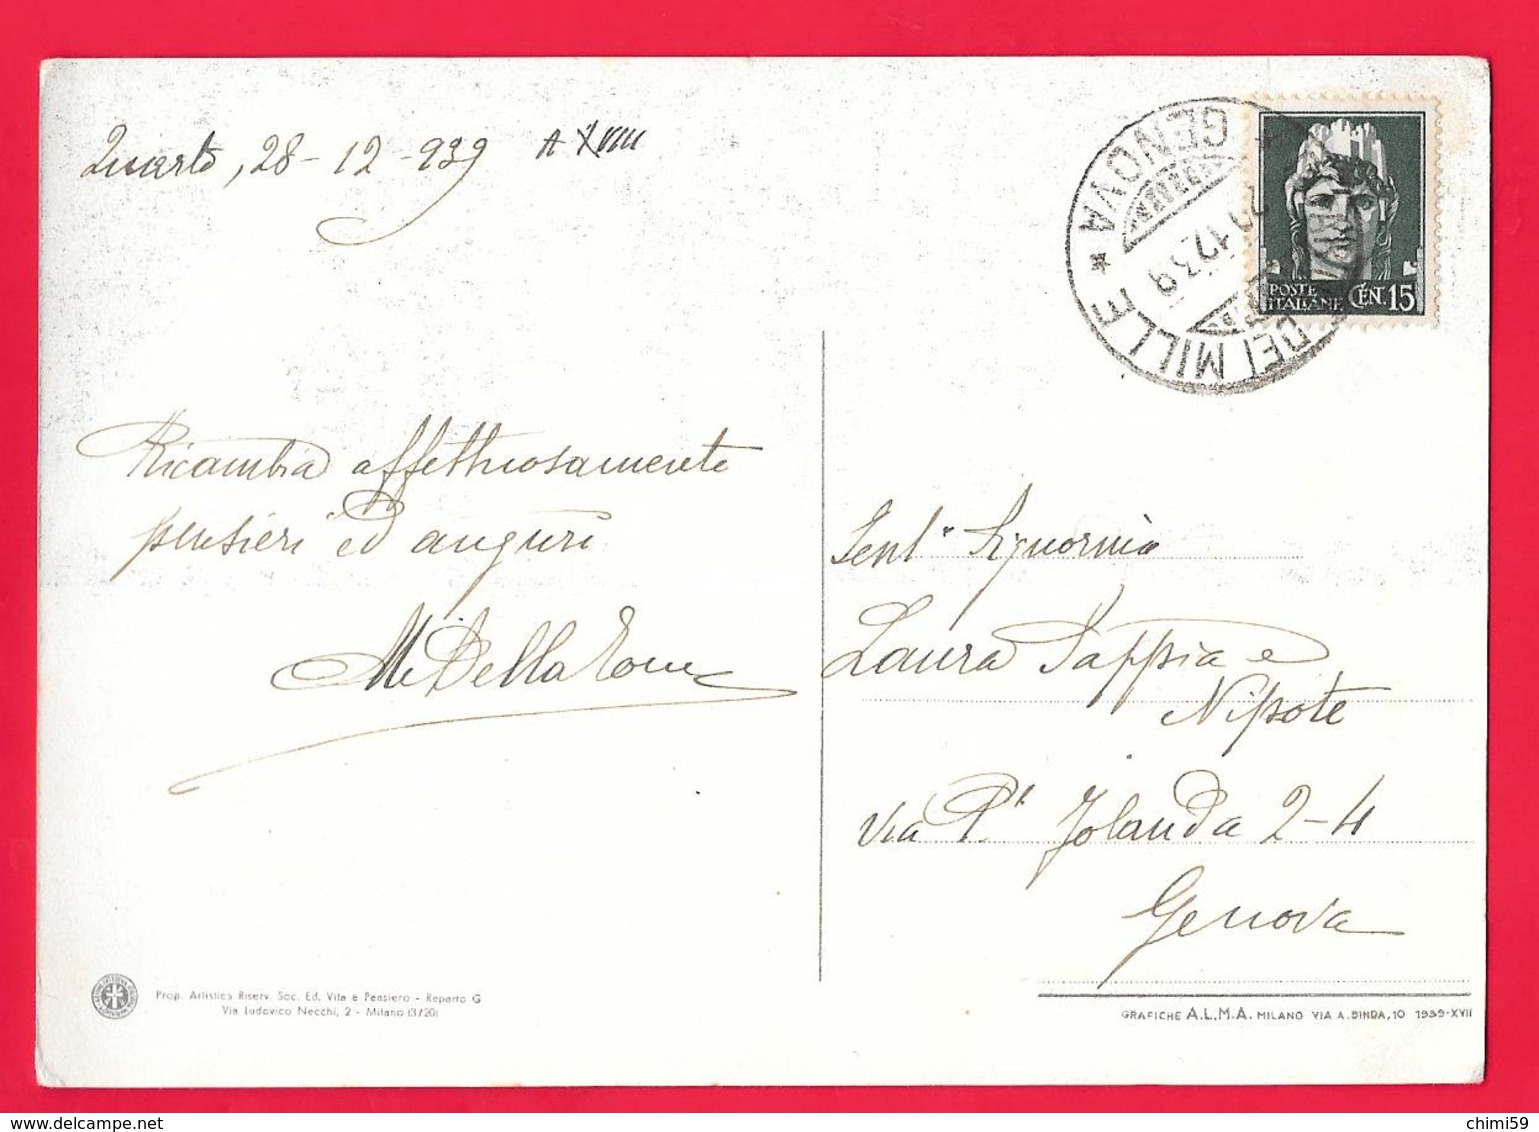 Quarto, 28-12-939 A XVIII
GENOVA
29.12.39
DEI MILLE *
POSTE
ITALIANE CENT. 15
Ricambia affettuosamente
pensieri ed auguri
Gent.ma Signorina
Laura Pappia e
Nipote
Via P.ssa Jolanda 2-4
Genova
Prop. Artistica Riserv. Soc. Ed. Vita e Pensiero - Reparto G
Via Ludovico Necchi, 2 - Milano (3/20)
GRAFICHE A.L.M.A. MILANO VIA A. BINDA, 10 1939-XVII
chimi59